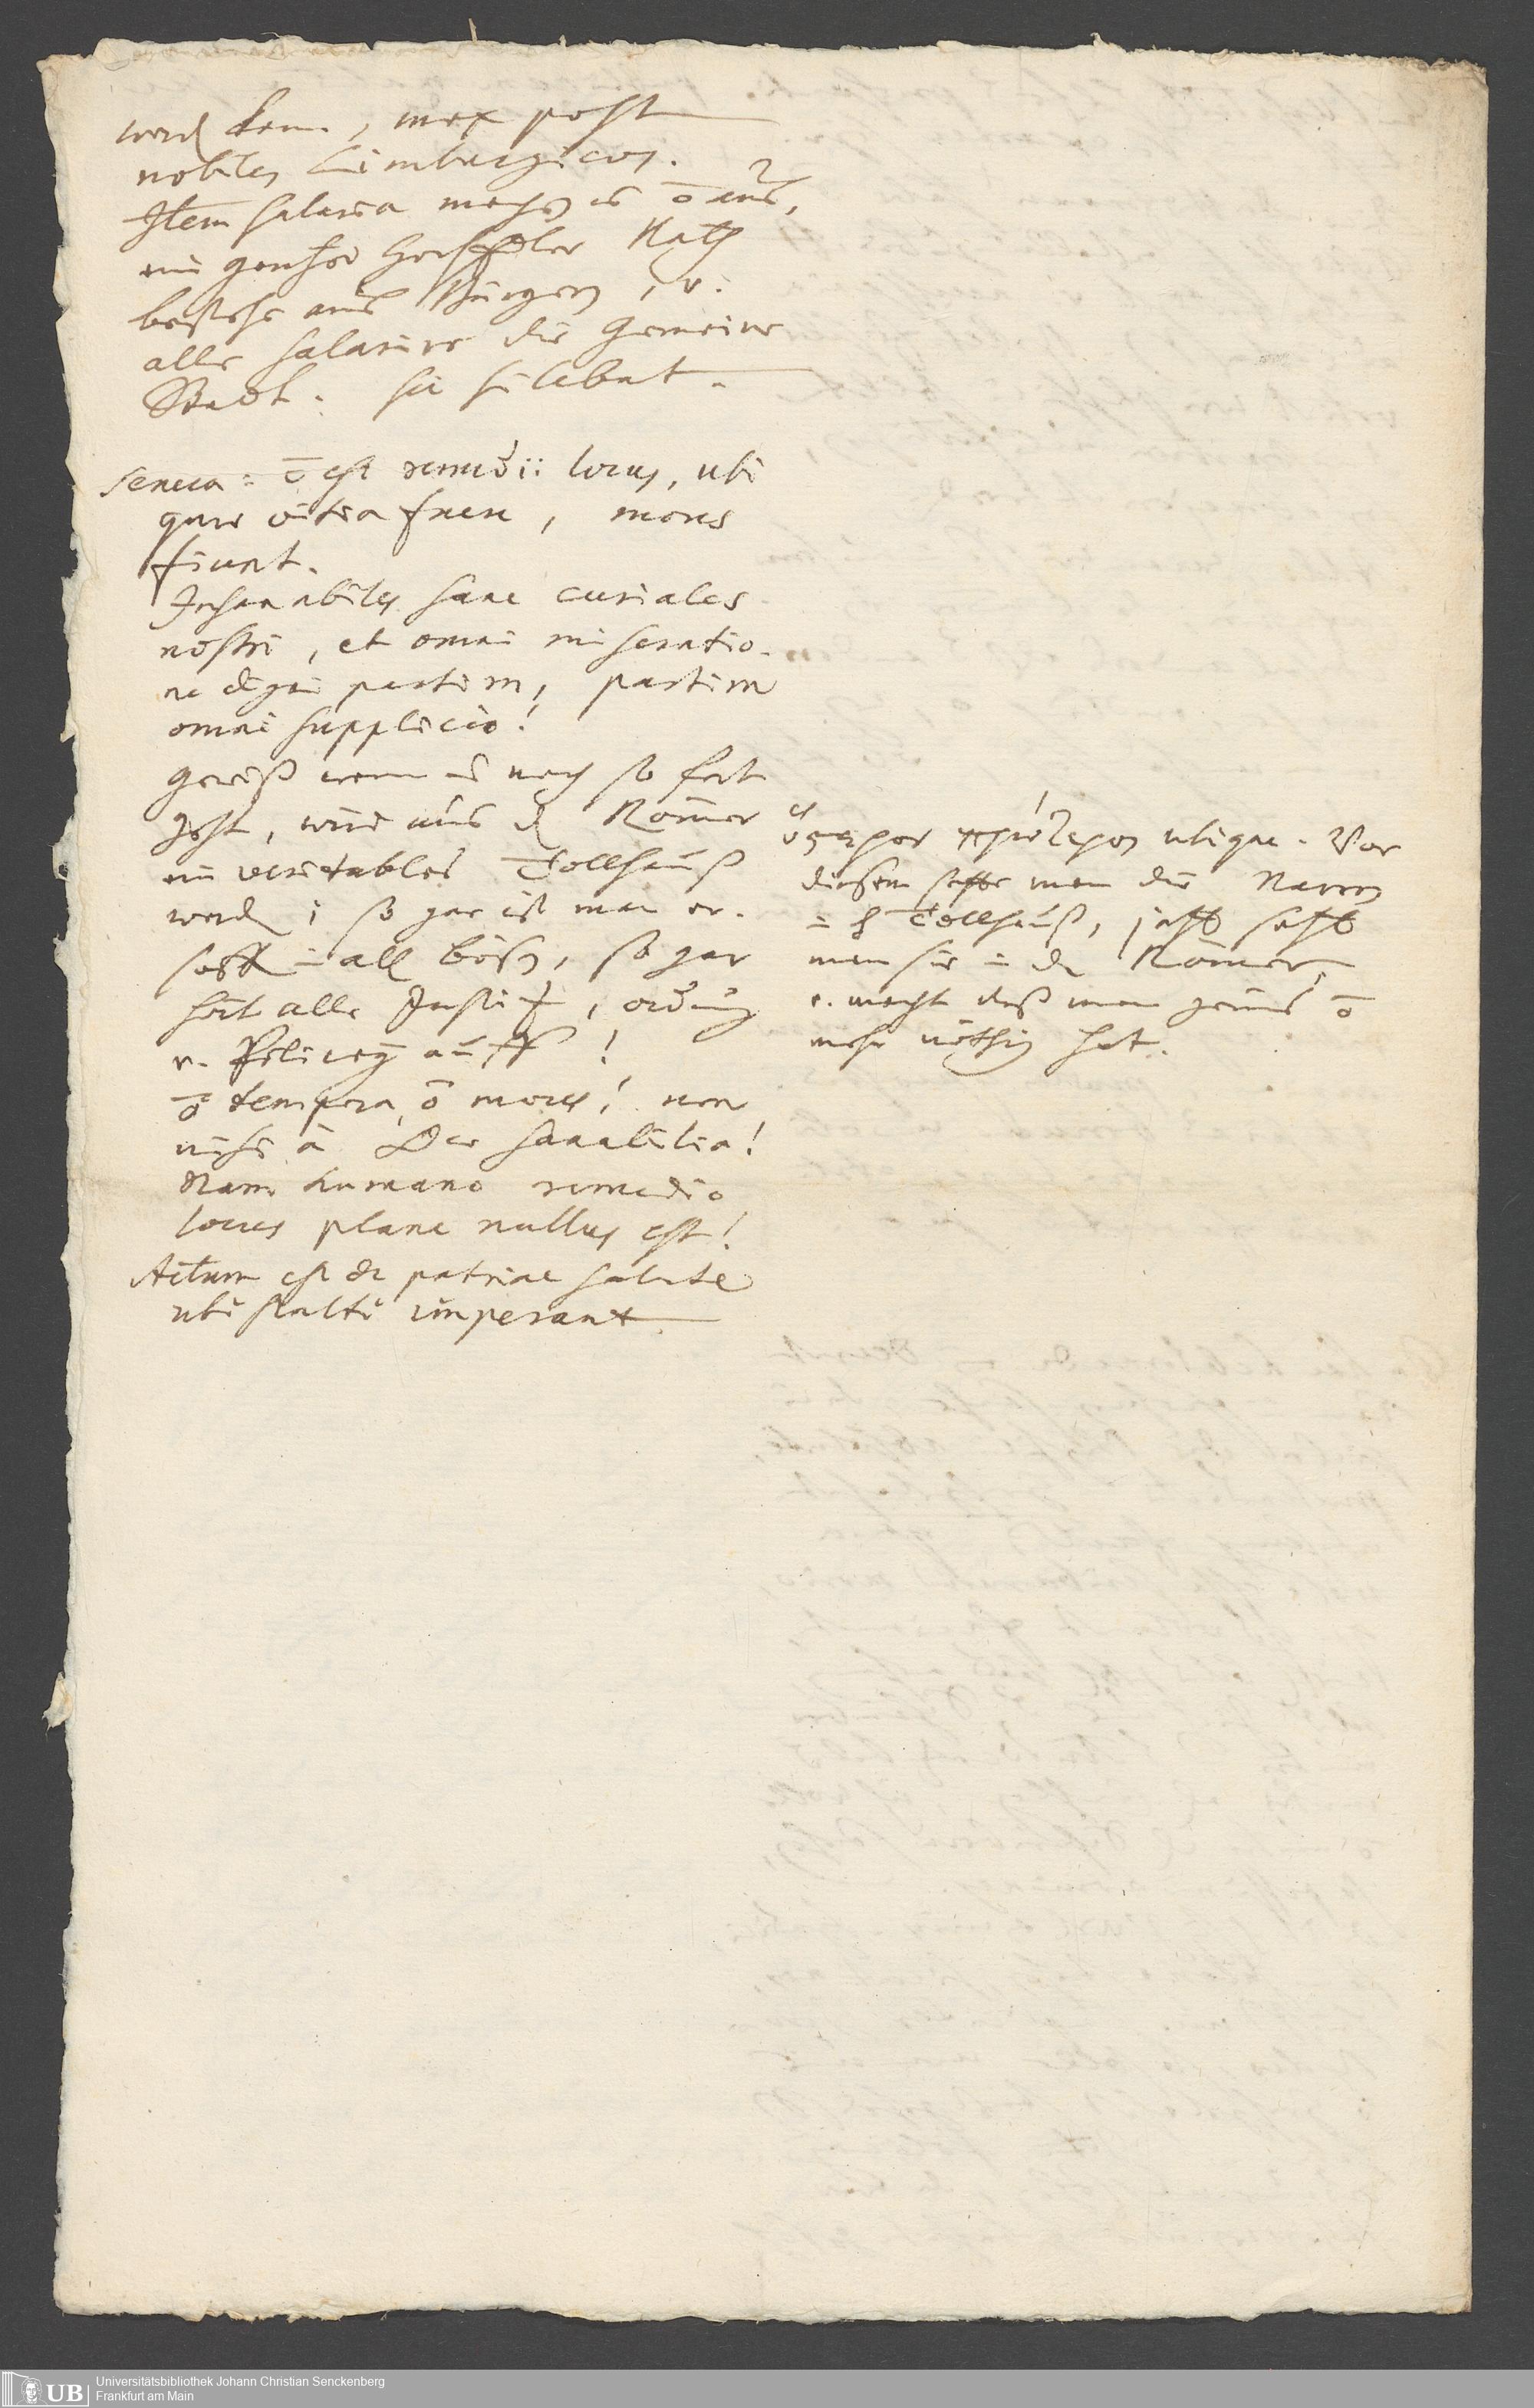 werd kan, mox post
nobiles Limburgicos.
Item salaria machen es ō aus,
ein
bestehe aus Bürgern, v.
alle salarire die Gemeine
Stadt. sic silebat.
Seneca: ō est remedii locus, ubi
quae vitia fuere, mores
fiunt.
Insanabiles sane curiales
nostri, et omni miseratio-
ne digni partim, partim
omni supplicio!
gewiß wenn es noch so fort
geht, wird aus d Römer
ein veritables Tollhauß
werd; so gar ist man er-
soff in all bösen, so gar
hört alle Justitz, ordnung
v. Policey auff!
ō tempora, ō mores! non
nisi à Deo sanabilia!
Nam humano remedio
locus plane nullus est!
Actum est de patriae salute
ubi stulti imperant
ὕστερον πρότερον ubique. Vor
diesem setzte man die Narren
in s Tollhauß, jetzt setzt
man sie in de Römer,
v. macht daß man jenes ō
mehr nöthig hat.
UB
Universitätsbibliothek Johann Christian Senckenberg
Frankfurt am Main